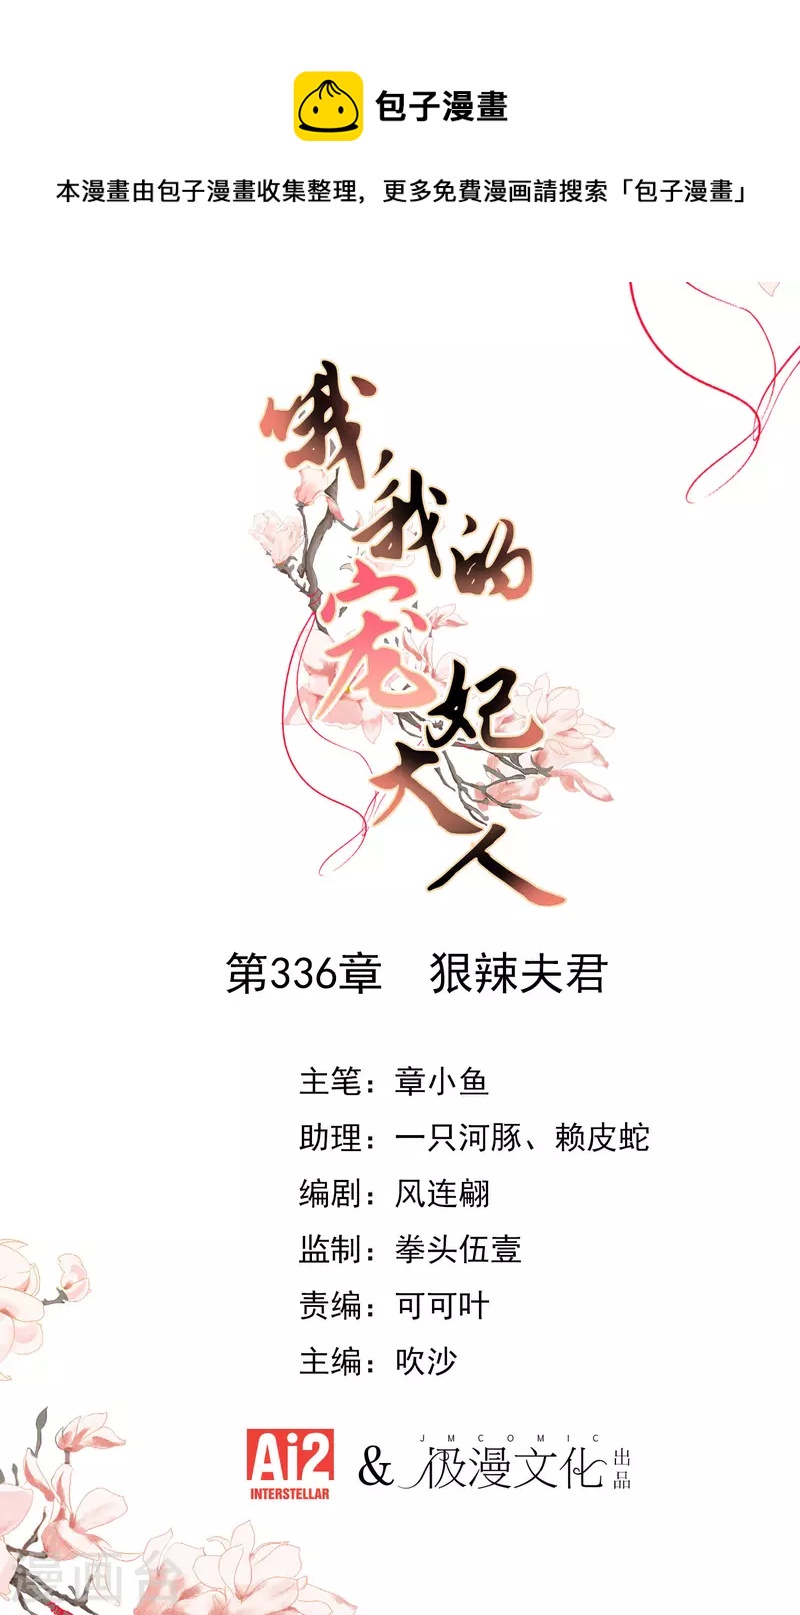 包子漫畫
本漫畫由包子漫畫收集整理，更多免費漫画請搜索「包子漫畫」
哦，我的宠妃大人
第336章 狠辣夫君
主笔：章小鱼
助理：一只河豚、赖皮蛇
编剧：风连翩
监制：拳头伍壹
责编：可可叶
主编：吹沙
Ai2 INTERSTELLAR & JMCOMIC 极漫文化 出品
漫画台